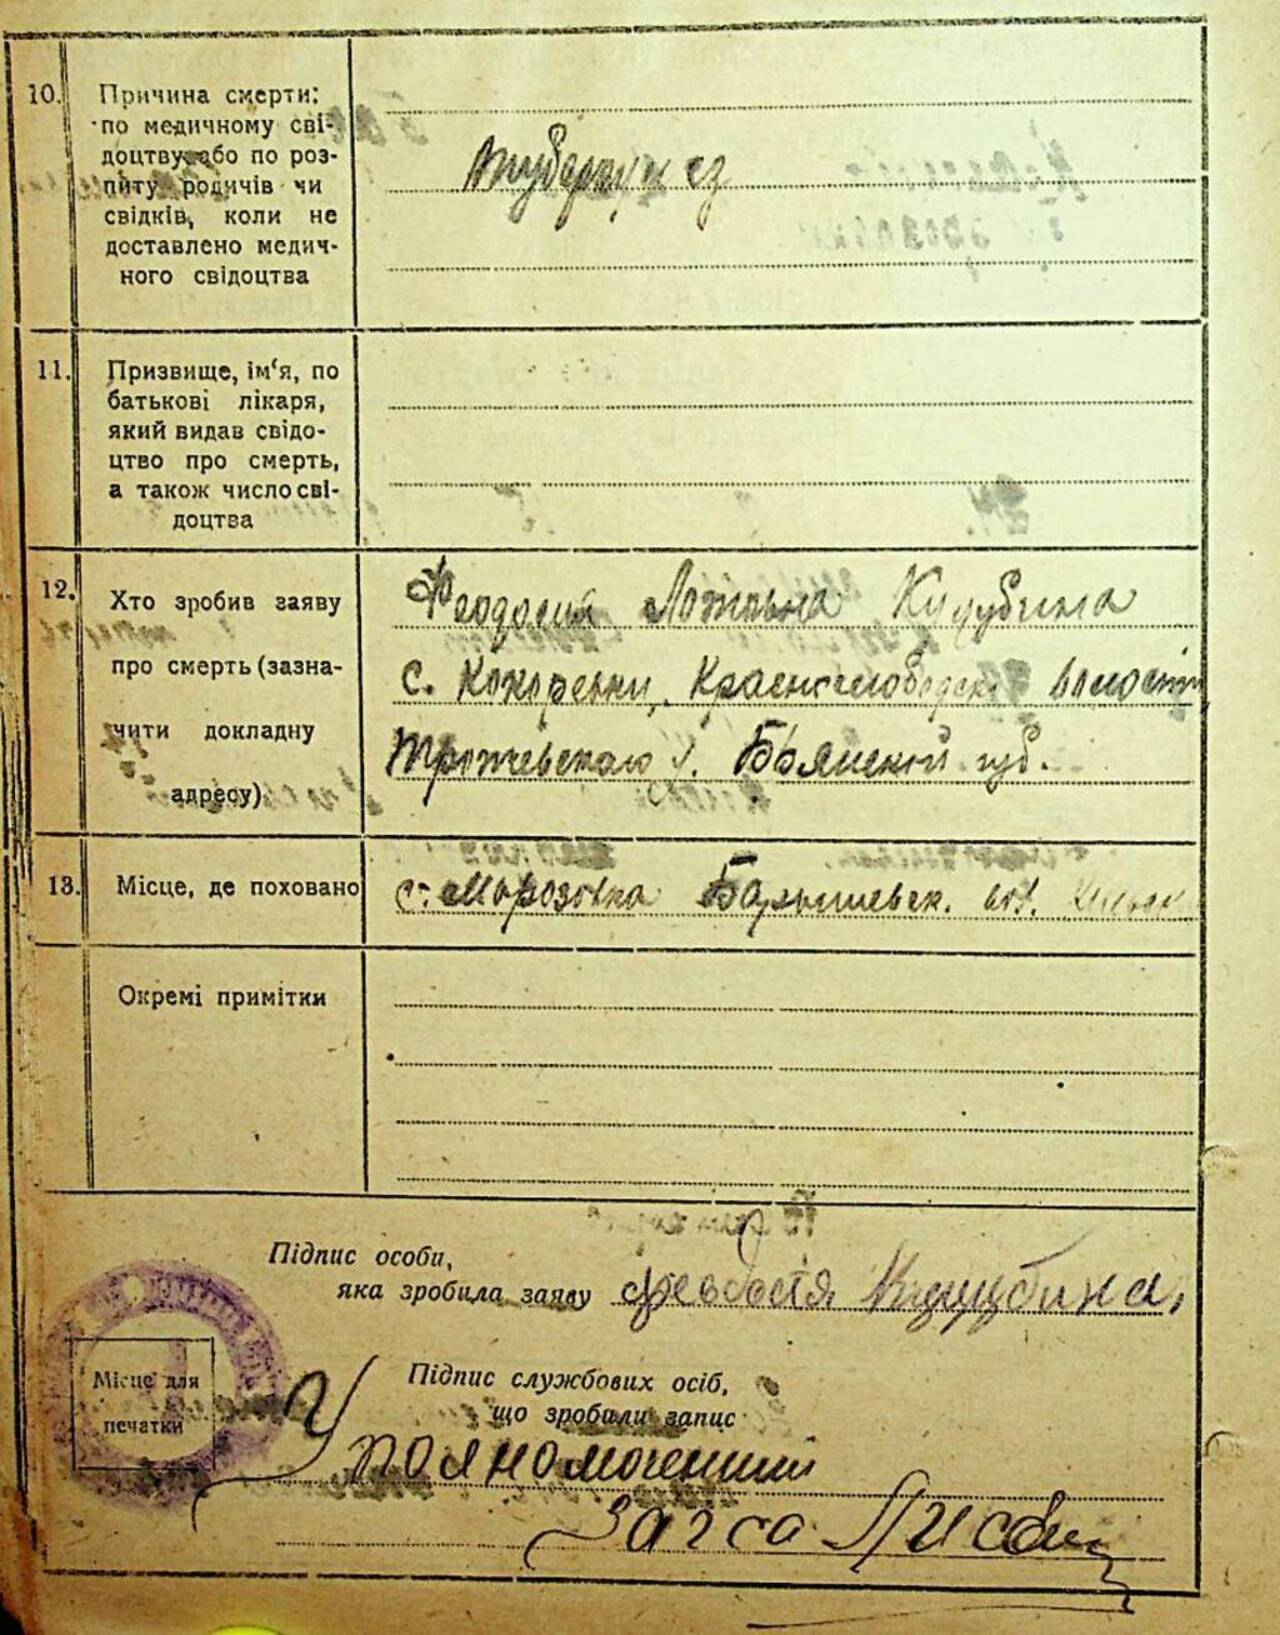 10. Причина смерти:
по медичному сві-
доцтву або по роз-
питу родичів чи
свідків, коли не
доставлено медич-
ного свідоцтва
Туберкулез
11. Призвище, ім‘я, по
батькові лікаря,
який видав свідо-
цтво про смерть,
а також число сві-
доцтва
12. Хто зробив заяву
про смерть (зазна-
чити докладну
адресу)
Феодосия Кудубина
с. Кокоревки, Краснослободск. волости
Трончевского у. Брянской губ.
13. Місце, де поховано
с. Морозовка Барышевск. вол. Киевск
Окремі примітки
Підпис особи,
яка зробила заяву Феодосія
Підпис службових осіб,
що зробили запис
Місце для
печатки
Уполномоченний
Загса